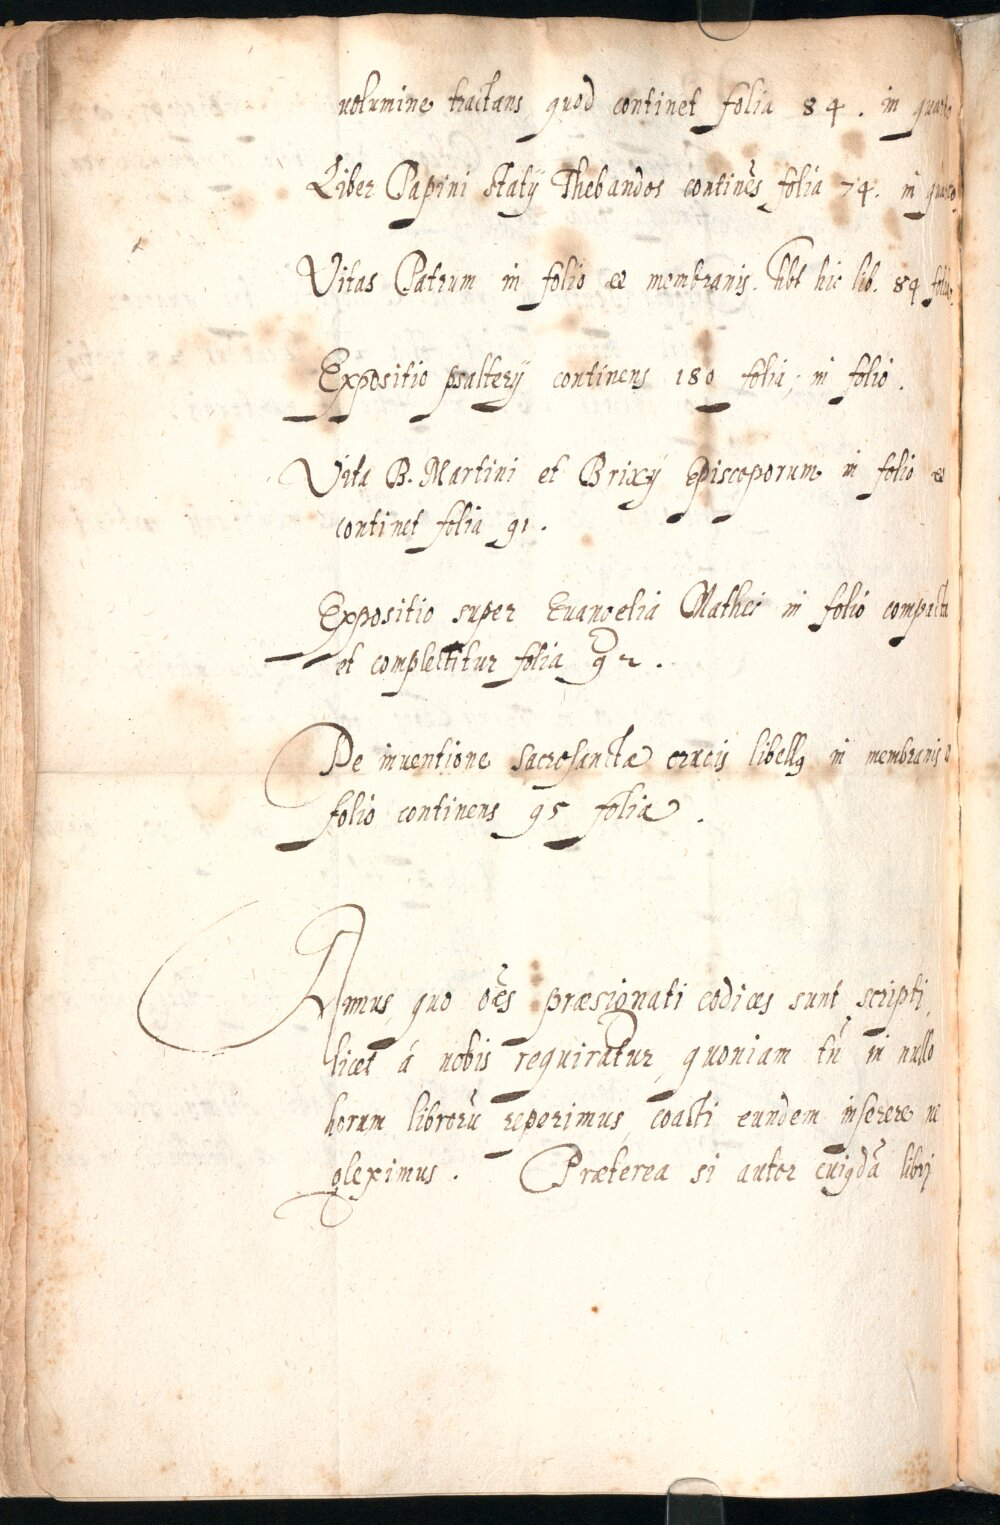 uolumine tractans quod continet folia 84. in quarto
Liber Papini Statij Thebandos continēs folia 74. in quarto.
Vitas Patrum in folio ac membranis. hbt hic lib. 84 folia.
Expositio psalterij continens 180 folia; in folio.
Vita B. Martini et Brixij Episcoporum in folio ac
continet folia 91.
Expositio super Euangelia Mathei in folio compacta
et complectitur folia 92.
De inuentione sacrosanctæ crucis libellꝰ in membranis &
folio continens 95 folia.
Annus quo oēs præsignati codices sunt scripti,
licet á nobis requiratur, quoniam tn̄ in nullo
horum librorū reperimus, coacti eundem inserere ne
gleximus. Præterea si autor cuiꝰdā libri